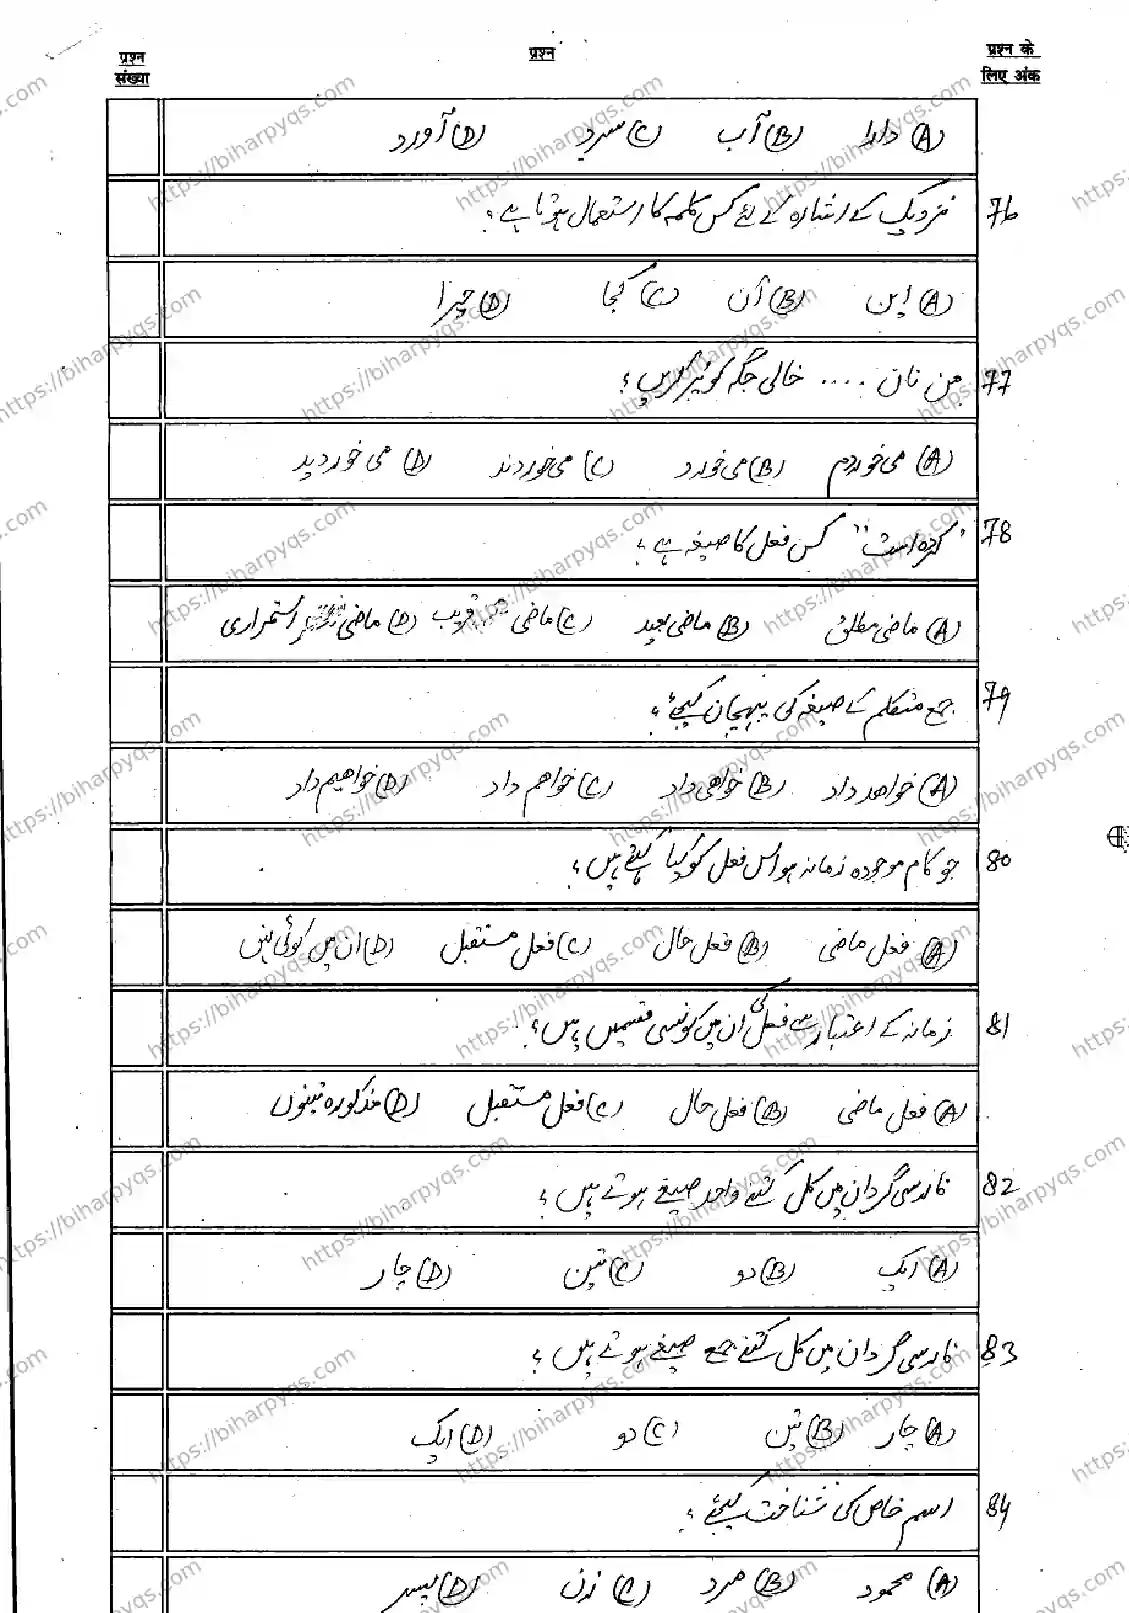 प्रश्न संख्या
प्रश्न
प्रश्न के लिए अंक
(A) دارا (B) آب (C) سرد (D) آورد
76 نزدیک کے اشارہ کے لئے کس کلمہ کا استعمال ہوتا ہے؟
(A) این (B) آن (C) کجا (D) چرا
77 من نان .... خالی جگہ کو پُر کریں؟
(A) می خوردم (B) می خورد (C) می خوردند (D) می خوردید
78 "کردہ است" کس فعل کا صیغہ ہے؟
(A) ماضی مطلق (B) ماضی بعید (C) ماضی قریب (D) ماضی استمراری
79 جمع متکلم کے صیغہ کی پہچان کیجئے؟
(A) خواهد داد (B) خواهی داد (C) خواهم داد (D) خواهیم داد
80 جو کام موجودہ زمانہ ہو اس فعل کو کیا کہتے ہیں؟
(A) فعل ماضی (B) فعل حال (C) فعل مستقبل (D) ان میں کوئی نہیں
81 زمانہ کے اعتبار سے فعل کی ان میں کونسی قسمیں ہیں؟
(A) فعل ماضی (B) فعل حال (C) فعل مستقبل (D) مذکورہ تینوں
82 فارسی گردان میں کل کتنے واحد صیغے ہوتے ہیں؟
(A) ایک (B) دو (C) تین (D) چار
83 فارسی گردان میں کل کتنے جمع صیغے ہوتے ہیں؟
(A) چار (B) تین (C) دو (D) ایک
84 اسم خاص کی شناخت کیجئے؟
(A) محمود (B) مرد (C) زن (D) پسر
https://biharpyqs.com